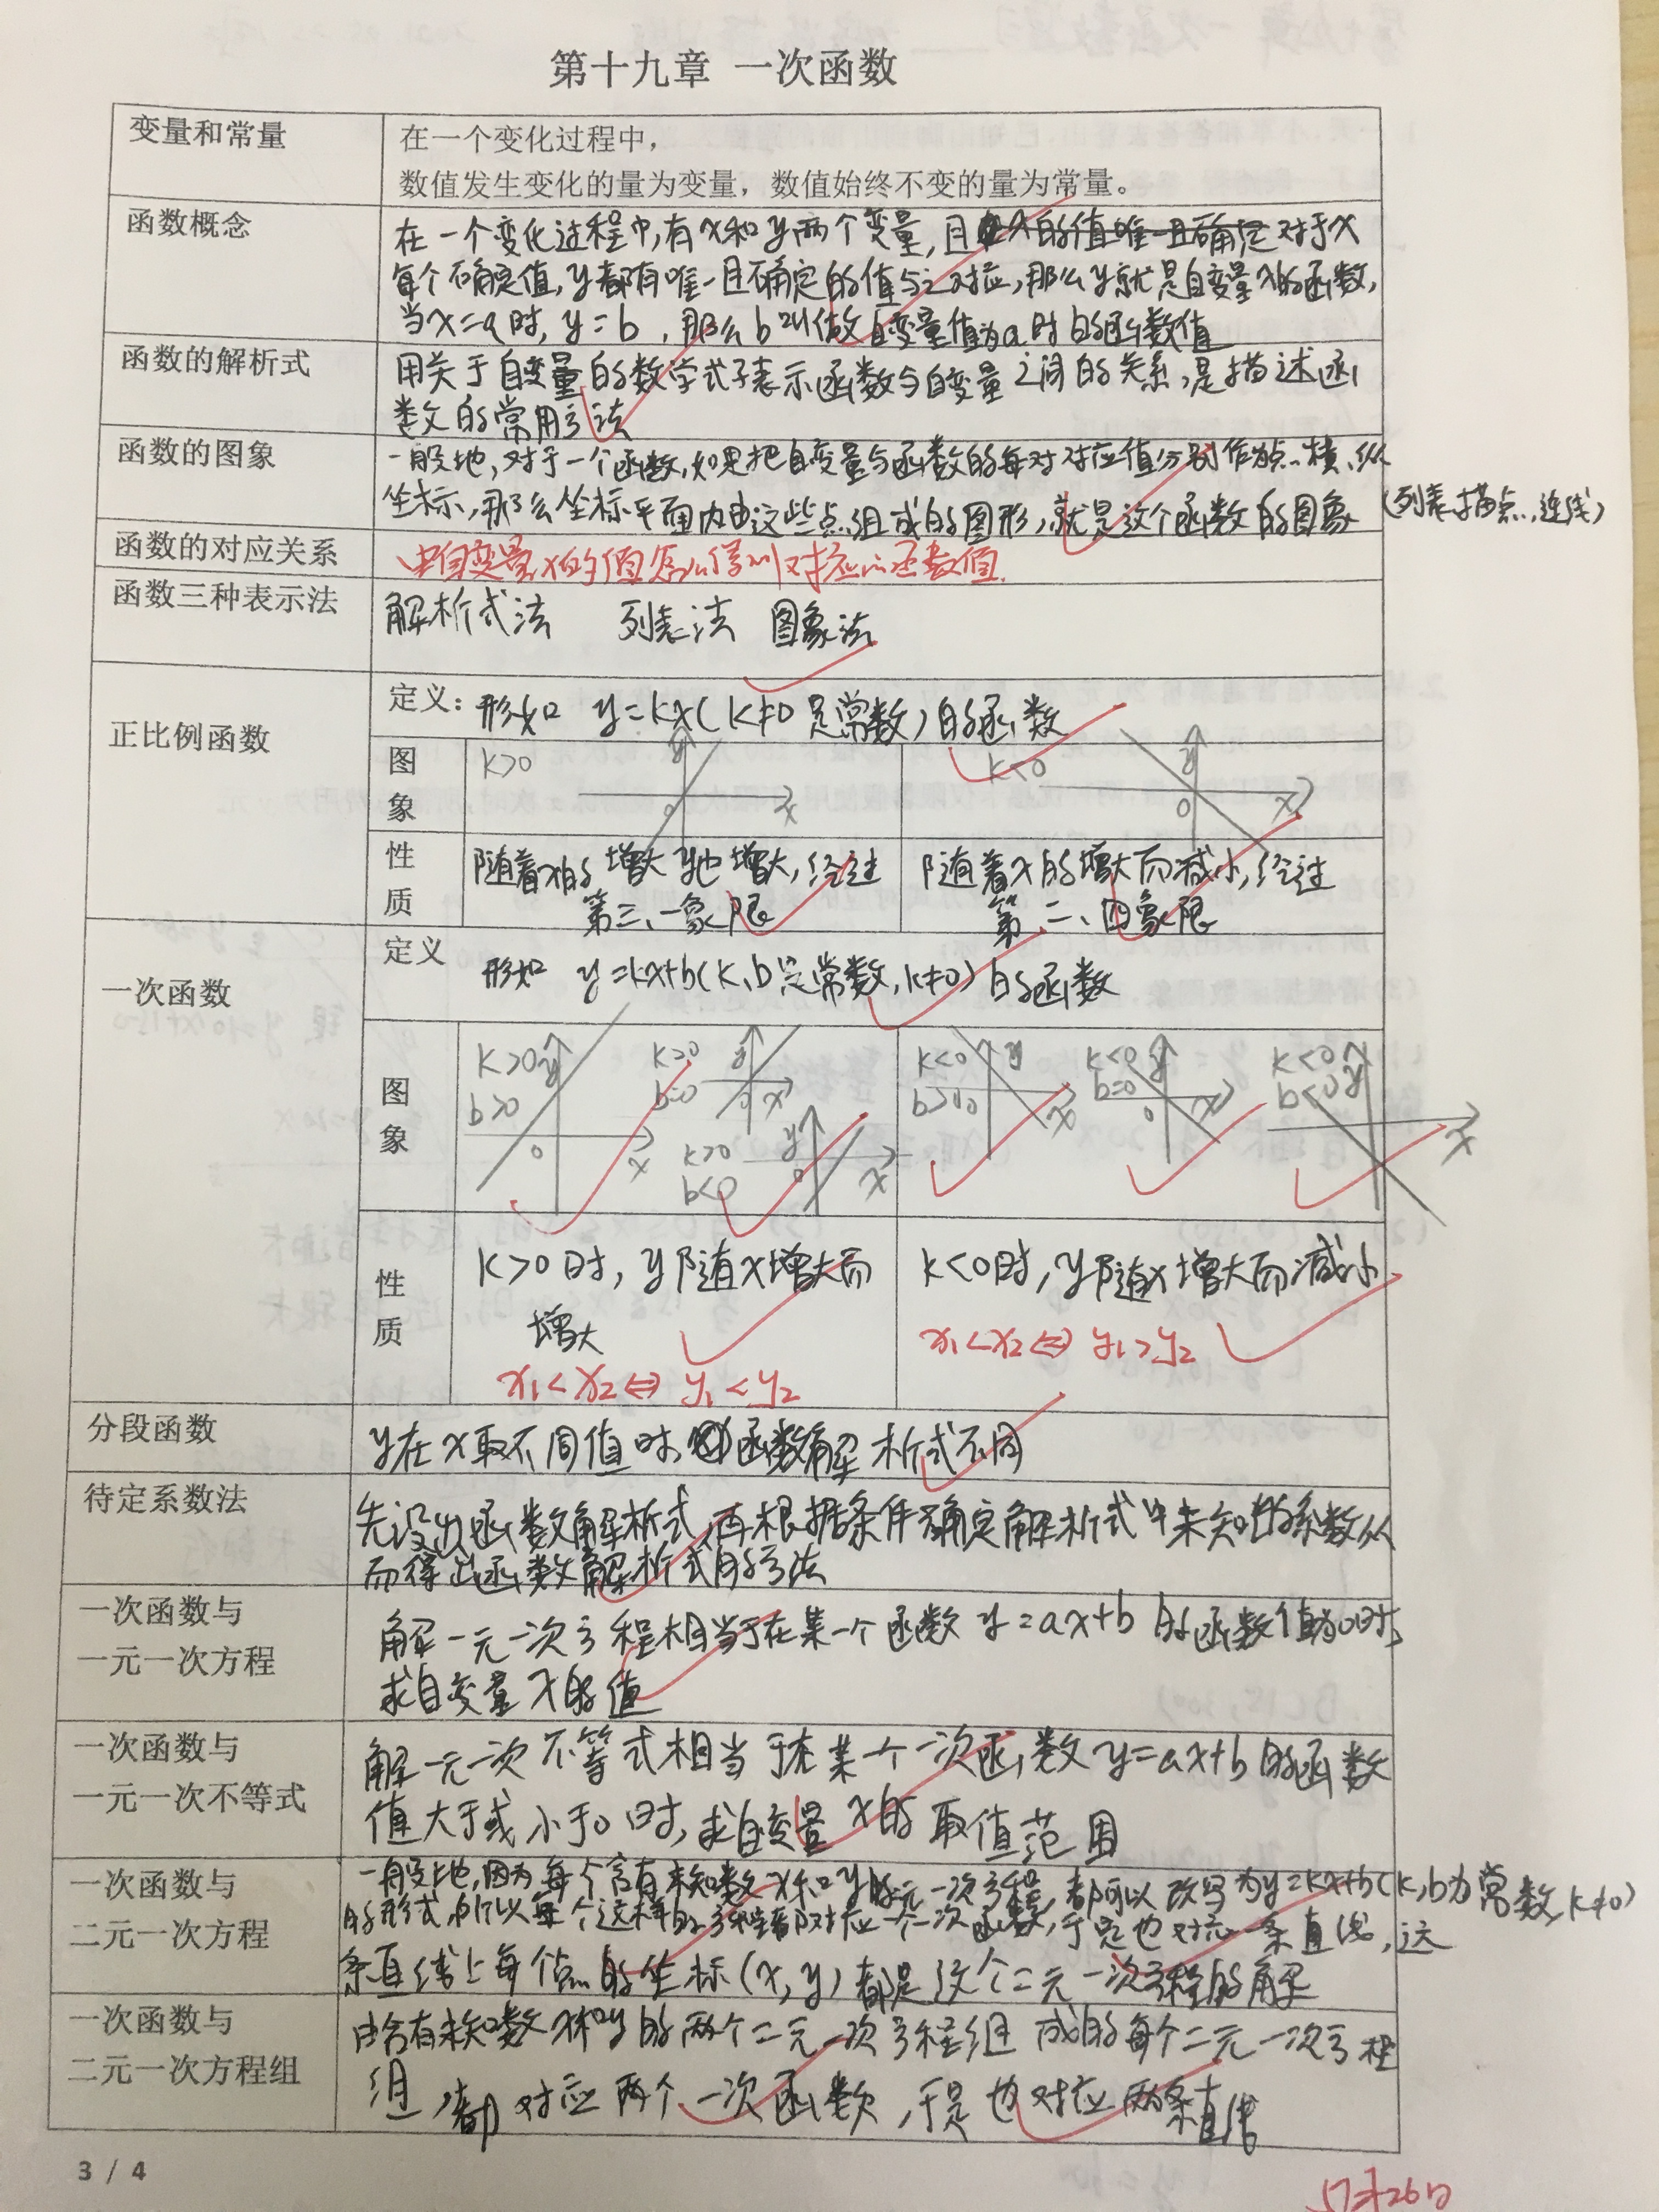 第十九章 一次函数
变量和常量
在一个变化过程中，
数值发生变化的量为变量，数值始终不变的量为常量。
函数概念
在一个变化过程中,有x和y两个变量,且对于x
每个确定值,y都有唯一且确定的值与之对应,那么y就是自变量x的函数,
当x=a时,y=b,那么b叫做自变量值为a时的函数值
函数的解析式
用关于自变量的数学式子表示函数与自变量之间的关系,是描述函
数的常用方法
函数的图象
一般地,对于一个函数,如果把自变量与函数的每对对应值分别作为点横、纵
坐标,那么坐标平面内由这些点组成的图形,就是这个函数的图象(列表,描点,连线)
函数的对应关系
由自变量x的值怎么得到对应的函数值.
函数三种表示法
解析式法 列表法 图象法
正比例函数
定义：形如 y=kx(k≠0是常数)的函数
图象
k>0 y 0 x
k<0 y 0 x
性质
随着x的增大y也增大,经过
第三、一象限
随着x的增大而减小,经过
第二、四象限
一次函数
定义 形如 y=kx+b(k、b是常数,k≠0)的函数
图象
k>0 b>0 y 0 x
k>0 b=0 y 0 x
k>0 b<0 y 0 x
k<0 b>0 y x
k<0 b=0 y 0 x
k<0 b<0 y x
性质
k>0时,y随x增大而
增大
x₁<x₂⇔y₁<y₂
k<0时,y随x增大而减小
x₁<x₂⇔y₁>y₂
分段函数
y在x取不同值时,函数解析式不同
待定系数法
先设出函数解析式,再根据条件确定解析式中未知的系数从
而得出函数解析式的方法
一次函数与
一元一次方程
解一元一次方程相当于在某一个函数y=ax+b的函数值为0时,
求自变量x的值
一次函数与
一元一次不等式
解一元一次不等式相当于在某一个一次函数y=ax+b的函数
值大于或小于0时,求自变量x的取值范围
一次函数与
二元一次方程
一般地,因为每个含有未知数x和y的二元一次方程,都可以改写为y=kx+b(k,b为常数,k≠0)
的形式,所以每个这样的方程都对应一个一次函数,于是也对应一条直线,这
条直线上每个点的坐标(x,y)都是这个二元一次方程的解
一次函数与
二元一次方程组
由含有未知数x和y的两个二元一次方程组成的每个二元一次方程
组,都对应两个一次函数,于是也对应两条直线
3 / 4
5月26日